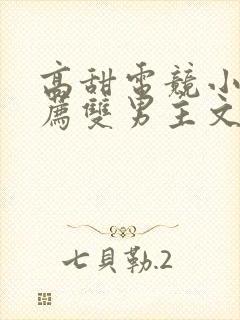 高甜電競小
薦雙男主文
七貝勒.2